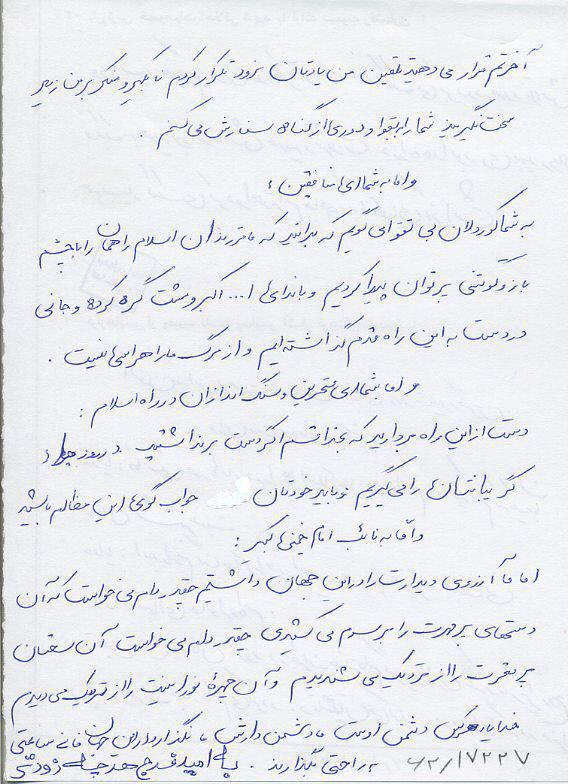 آخرتم قرار می دهید تلقین من یادتان نرود تکرار کردم نا نکیر و منکر بر من زیاد
سخت نگیرند شما را به تقوا و دوری از گناه سفارش می کنم
و اما به شما ای منافقین :
به شما کوردلان بی تقوا می گویم که بدانید که ما فرزندان اسلام راهمان را با چشم
باز و گوشی پر توان پیدا کردیم و با ندای ا... اکبر و مشت گره کرده و جانی
در دست به این راه قدم گذاشته ایم و از مرگ ما را هراسی نیست .
و اما شما ای مخربین و سنگ اندازان در راه اسلام :
دست از این راه بردارید که بخدا قسم اگر دست برنداشتید در روز جزا
گریبانتان را می گیریم و باید خودتان جواب گوی این مظالم باشید
و اما به نائب امام خمینی کبیر :
اماما آرزوی دیدارت را در این جهان داشتم چقدر دلم می خواست که آن
دستهای پر مهرت را بر سرم می کشیدی چقدر دلم می خواست آن سخنان
پر مغزت را از نزدیک می شنیدم و آن چهرۀ نورانیت را از نزدیک می دیدم
خدایا هر کس دشمن اوست ما دشمن دارش ما نگذار در این جهان فانی ساعتی
به راحتی بگذارند . به امید فرج هر چه زودتر